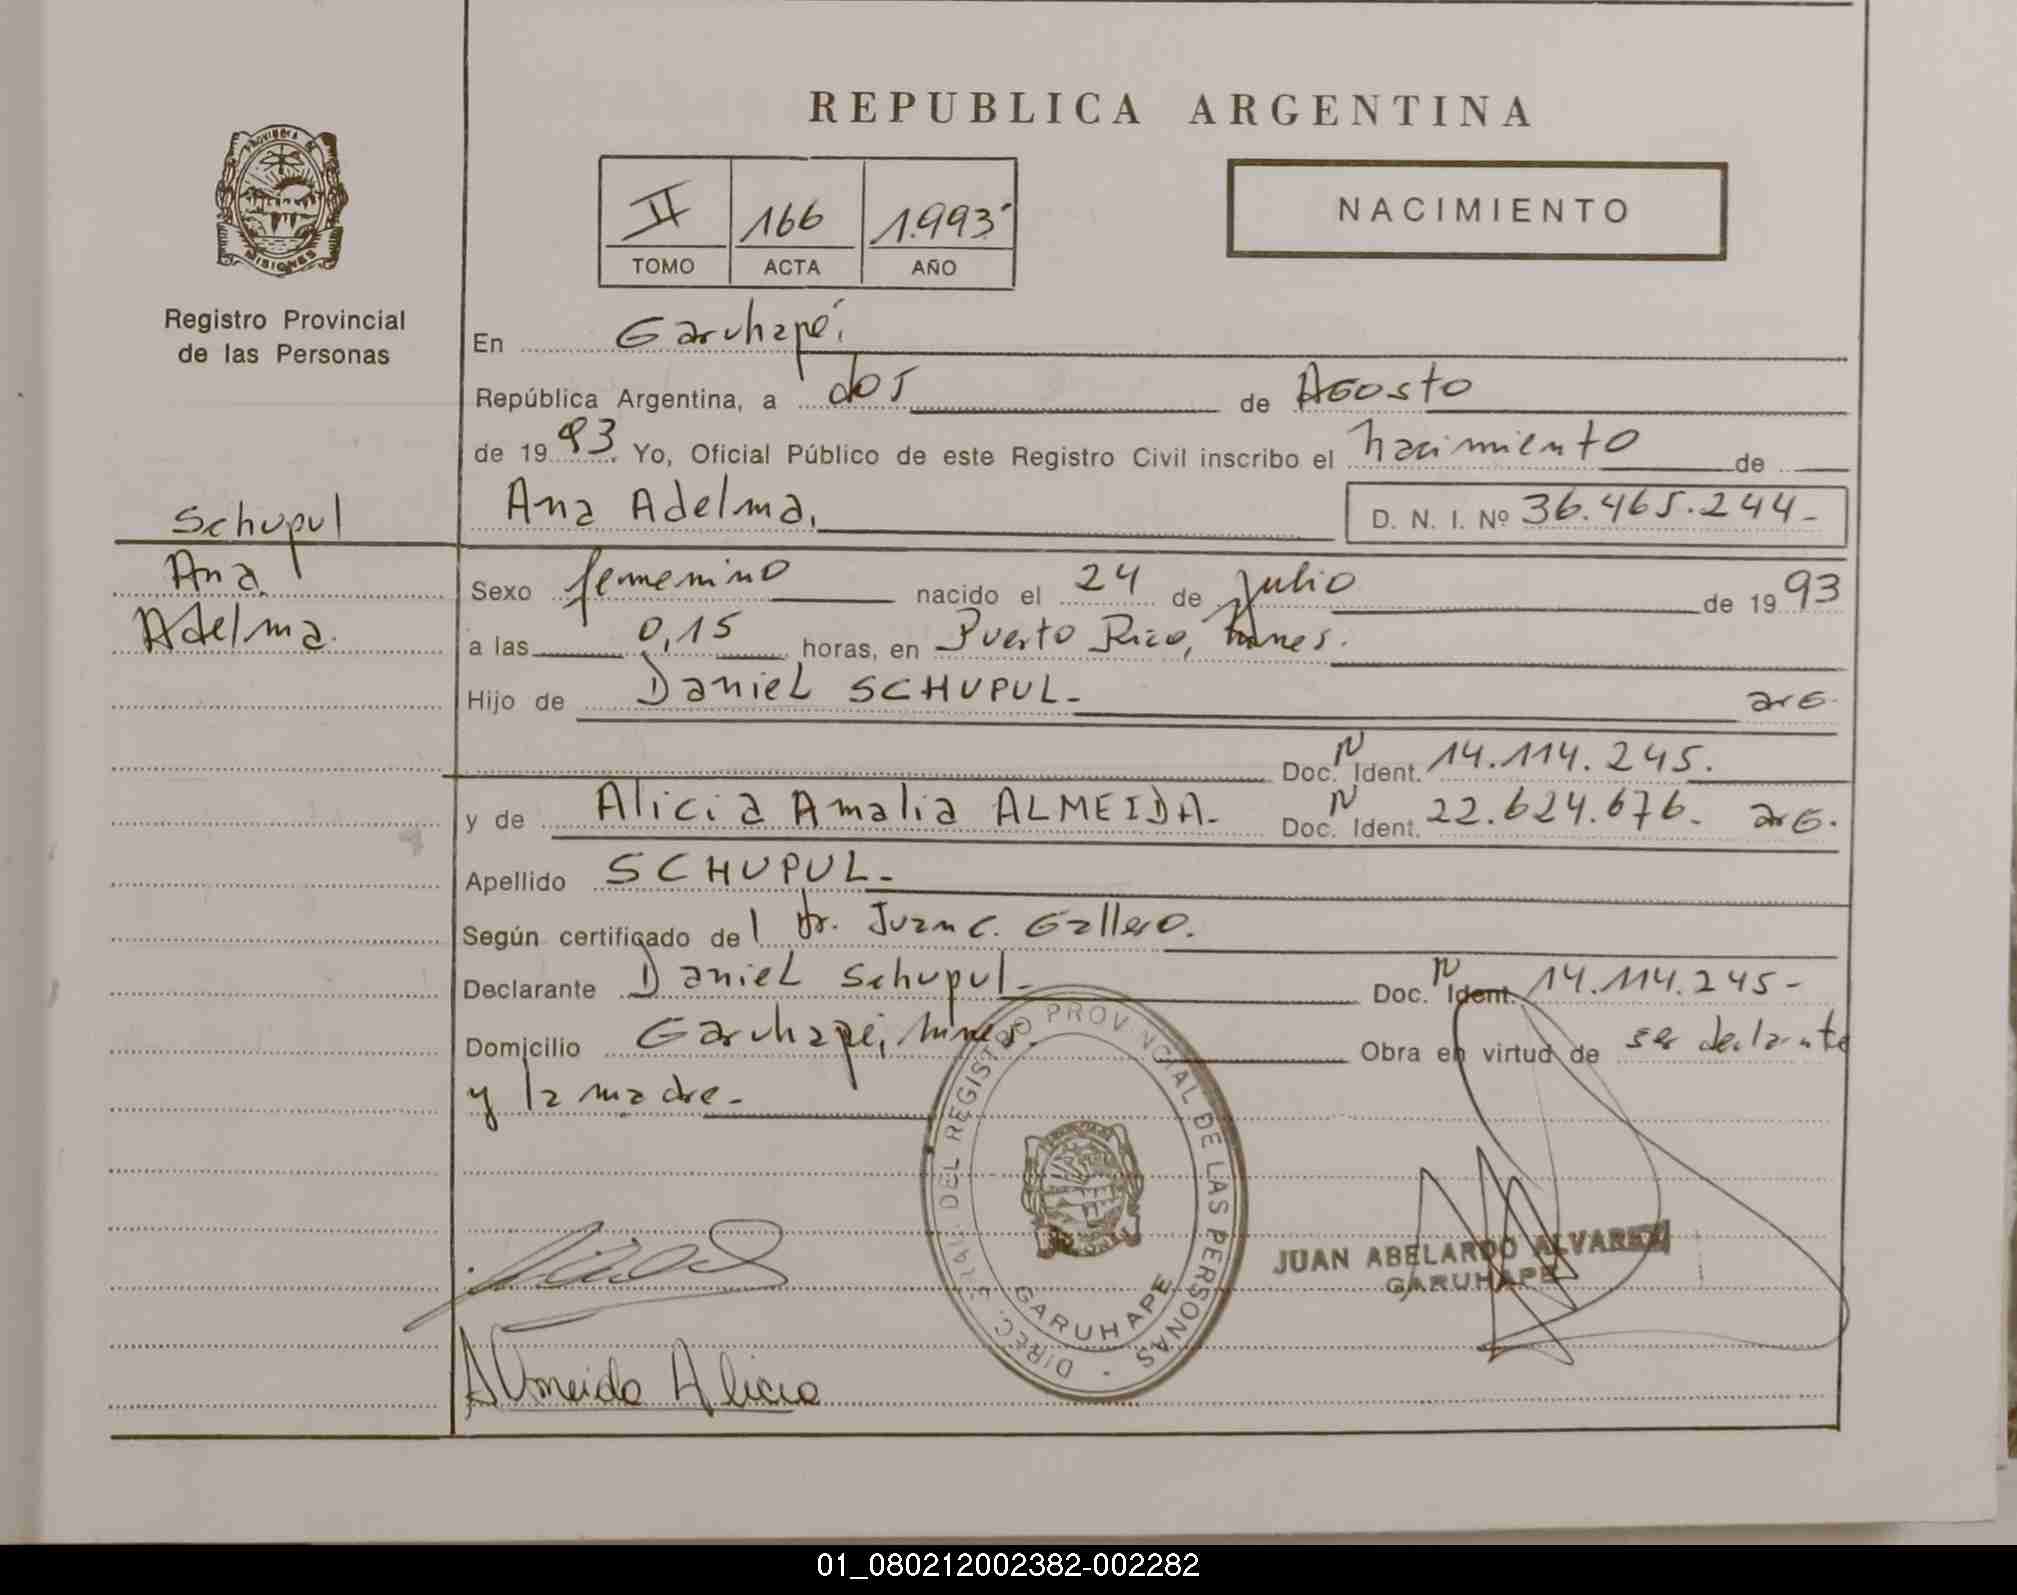 REPUBLICA ARGENTINA
PROVINCIA DE
MISIONES
Registro Provincial
de las Personas
II 166 1.993
TOMO ACTA AÑO
NACIMIENTO
En Garuhapé,
República Argentina, a dos de Agosto
de 1993. Yo, Oficial Público de este Registro Civil inscribo el nacimiento de
Ana Adelma, D. N. I. Nº 36.465.244-
Schupul
Ana
Adelma.
Sexo femenino nacido el 24 de Julio de 1993
a las 0,15 horas, en Puerto Rico, Mnes.
Hijo de Daniel SCHUPUL- arg.
Doc. N Ident. 14.114.245.
y de Alicia Amalia ALMEIDA- Doc. N Ident. 22.624.676. arg.
Apellido SCHUPUL-
Según certificado del Dr. Juan C. Gallero.
Declarante Daniel Schupul- Doc. N Ident. 14.114.245-
Domicilio Garuhapé, Mnes. Obra en virtud de ser declarante
y la madre-
DIREC. GRAL. DEL REGISTRO PROVINCIAL DE LAS PERSONAS
GARUHAPE
JUAN ABELARDO ALVAREZ
GARUHAPE
Almeida Alicia
01_080212002382-002282